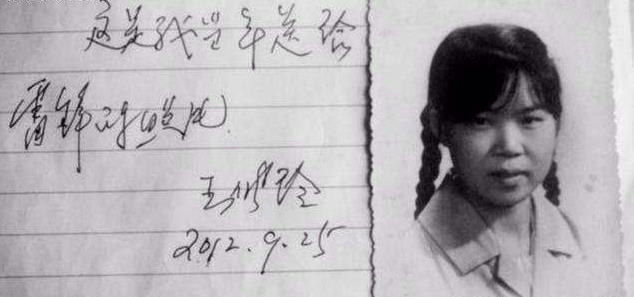 这是我当年送给
雷锋的照片.
王佩玲
2012.9.25